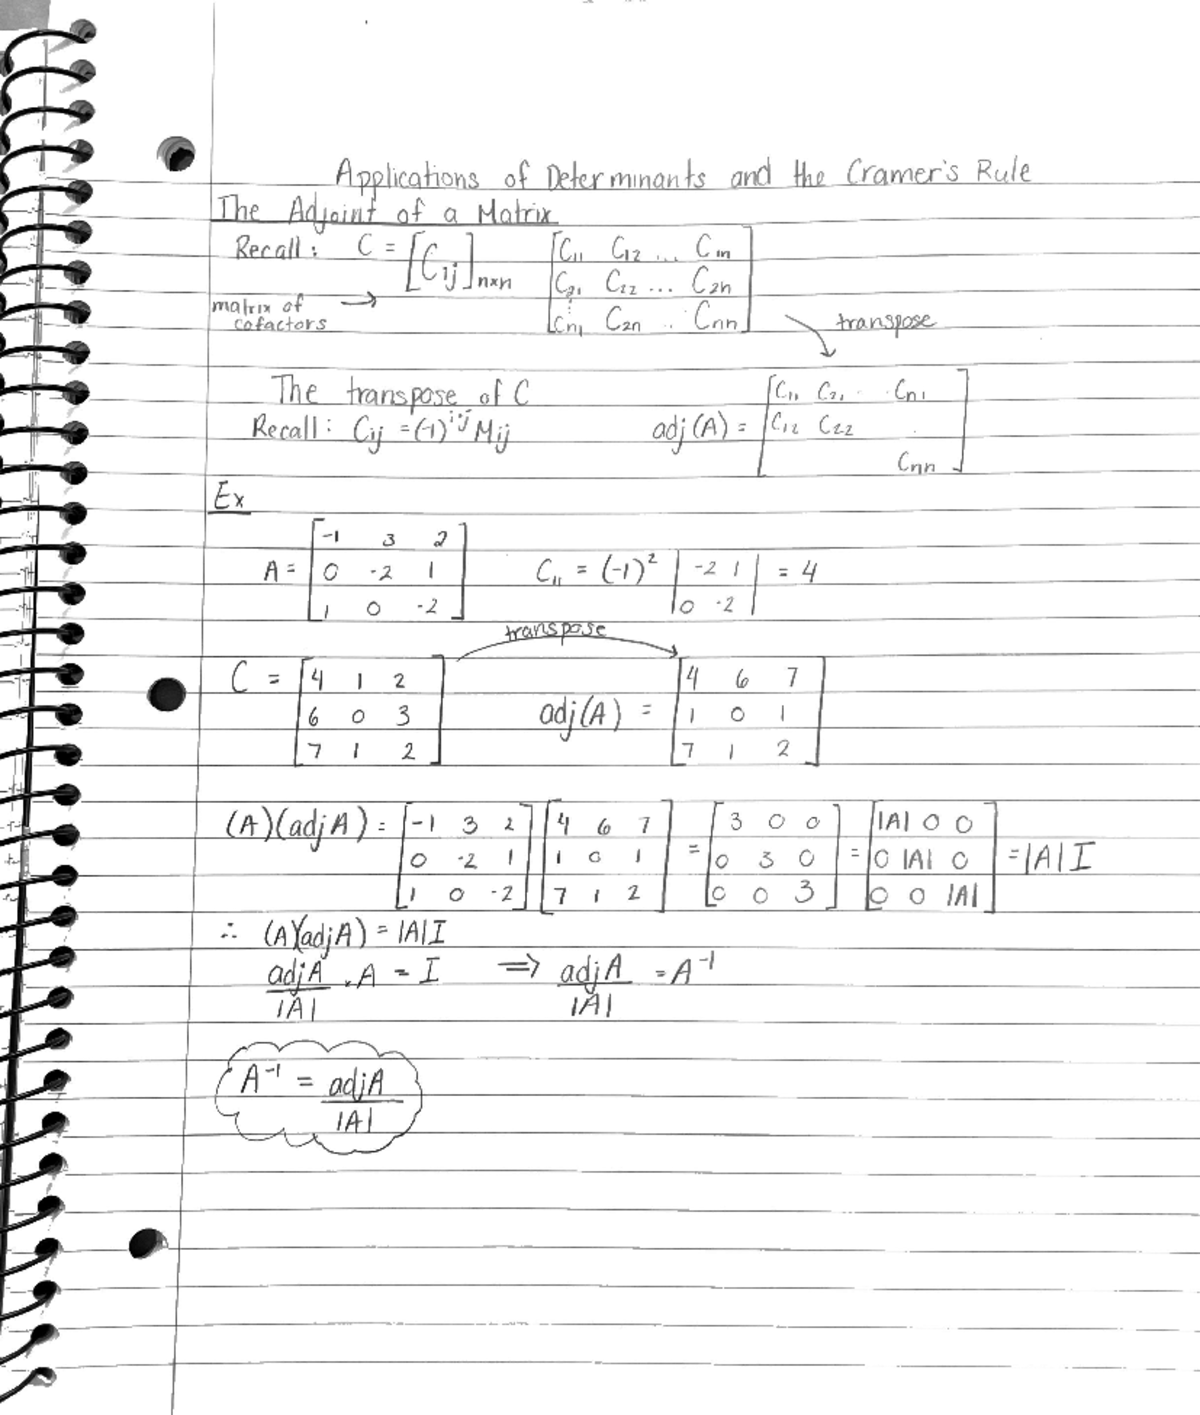 Applications of Determinants and the Cramer's Rule
The Adjoint of a Matrix
Recall: C = [Cij]n×n [C11 C12 ... C1n
C21 C22 ... C2n
⋮
Cn1 C2n .. Cnn]
matrix of → 
cofactors
transpose
The transpose of C
Recall: Cij = (-1)^ij Mij
adj(A) = [C11 C21 .. Cn1
C12 C22 .
Cnn]
Ex
A = [-1 3 2
0 -2 1
1 0 -2]
C11 = (-1)² |-2 1
0 -2| = 4
transpose
C = [4 1 2
6 0 3
7 1 2]
adj(A) = [4 6 7
1 0 1
7 1 2]
(A)(adjA) = [-1 3 2
0 -2 1
1 0 -2] [4 6 7
1 0 1
7 1 2] = [3 0 0
0 3 0
0 0 3] = [|A| 0 0
0 |A| 0
0 0 |A|] = |A| I
∴ (A)(adjA) = |A|I
adjA/|A| . A = I ⇒ adjA/|A| = A⁻¹
A⁻¹ = adjA/|A|